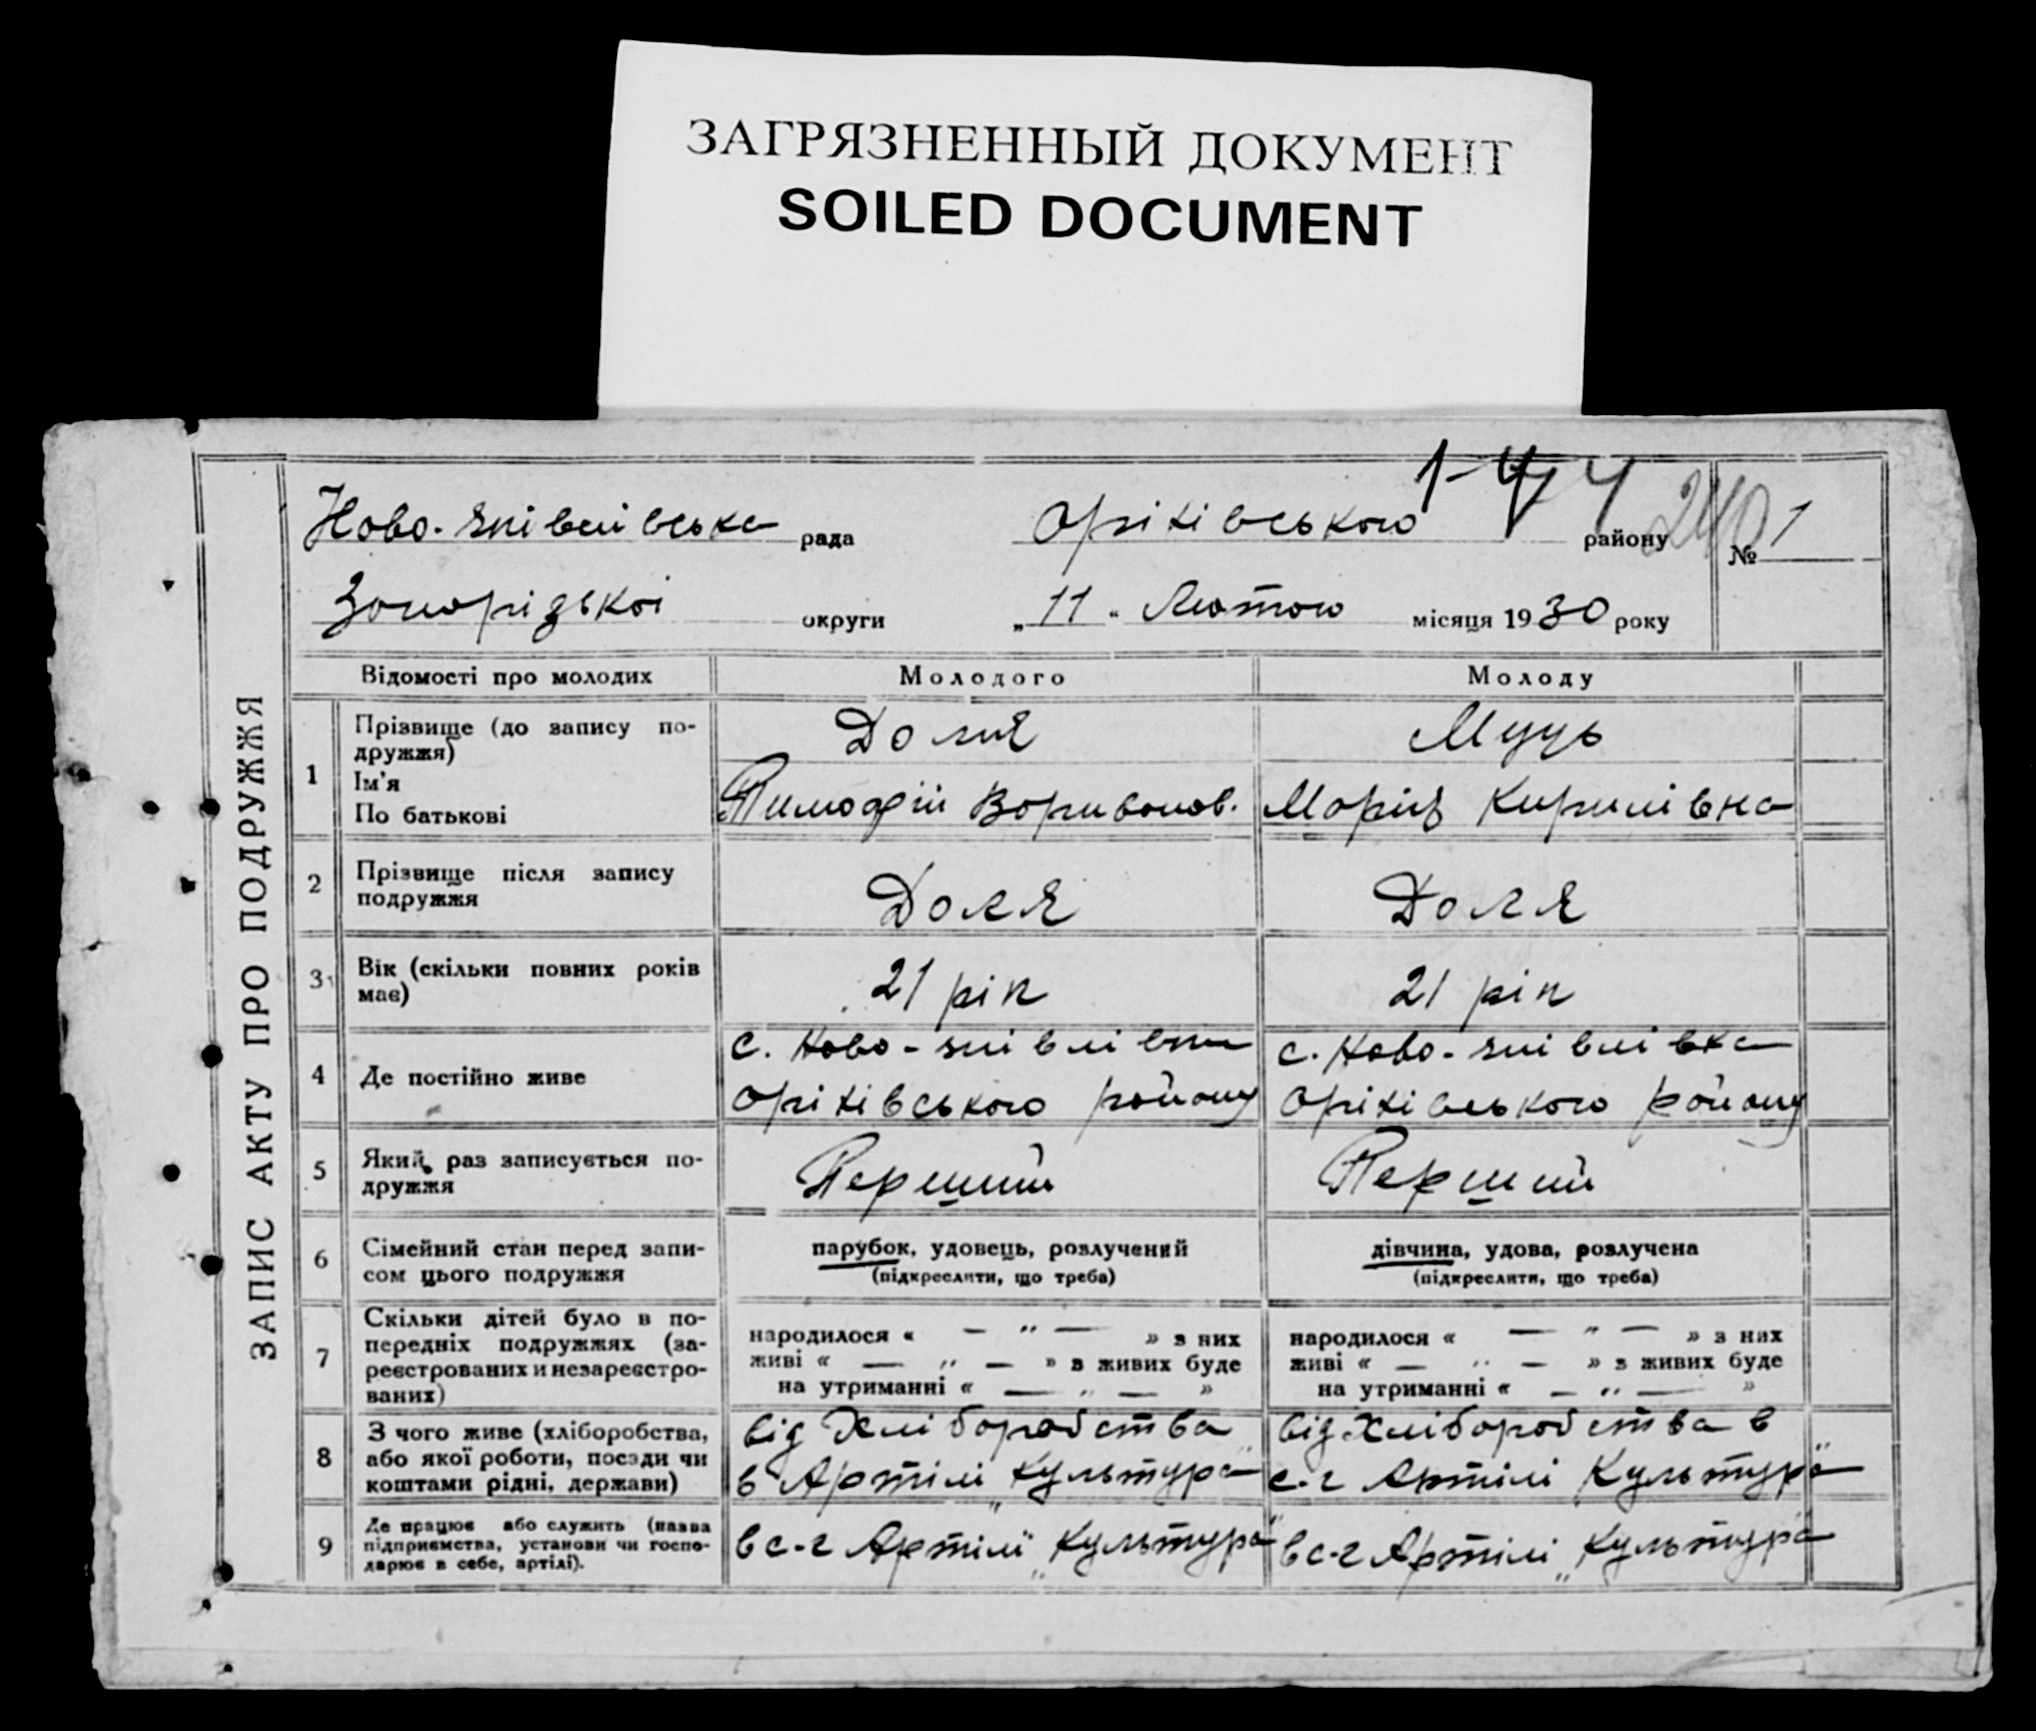 ЗАГРЯЗНЕННЫЙ ДОКУМЕНТ
SOILED DOCUMENT
ЗАПИС АКТУ ПРО ПОДРУЖЖЯ
Ново-Яківлівська рада Оріхівського району № 1
Запорізької округи „11“ Лютого місяця 1930 року
Відомості про молодих Молодого Молоду
1 Прізвище (до запису по-
дружжя)
Ім'я
По батькові
Доля
Тимофій
Муць
Марія Кирилівна
2 Прізвище після запису
подружжя
Доля
Доля
3 Вік (скільки повних років
має)
21 рік
21 рік
4 Де постійно живе
с. Ново-Яківлівка
Оріхівського району
с. Ново-Яківлівка
Оріхівського району
5 Який раз записується по-
дружжя
Перший
Перший
6 Сімейний стан перед запи-
сом цього подружжя
парубок, удовець, розлучений
(підкреслити, що треба)
дівчина, удова, розлучена
(підкреслити, що треба)
7 Скільки дітей було в по-
передніх подружжях (за-
реєстрованих и незареєстро-
ваних)
народилося « — „ — » з них
живі « — „ — » з живих буде
на утриманні « — „ — »
народилося « — „ — » з них
живі « — „ — » з живих буде
на утриманні « — „ — »
8 З чого живе (хліборобства,
або якої роботи, посади чи
коштами рідні, держави)
від Хліборобства
в Артілі „Культура“
від Хліборобства в
с-г Артілі „Культура“
9 Де працює або служить (назва
підприємства, установи чи госпо-
дарює в себе, артілі).
в с-г Артілі „Культура“
в с-г Артілі „Культура“